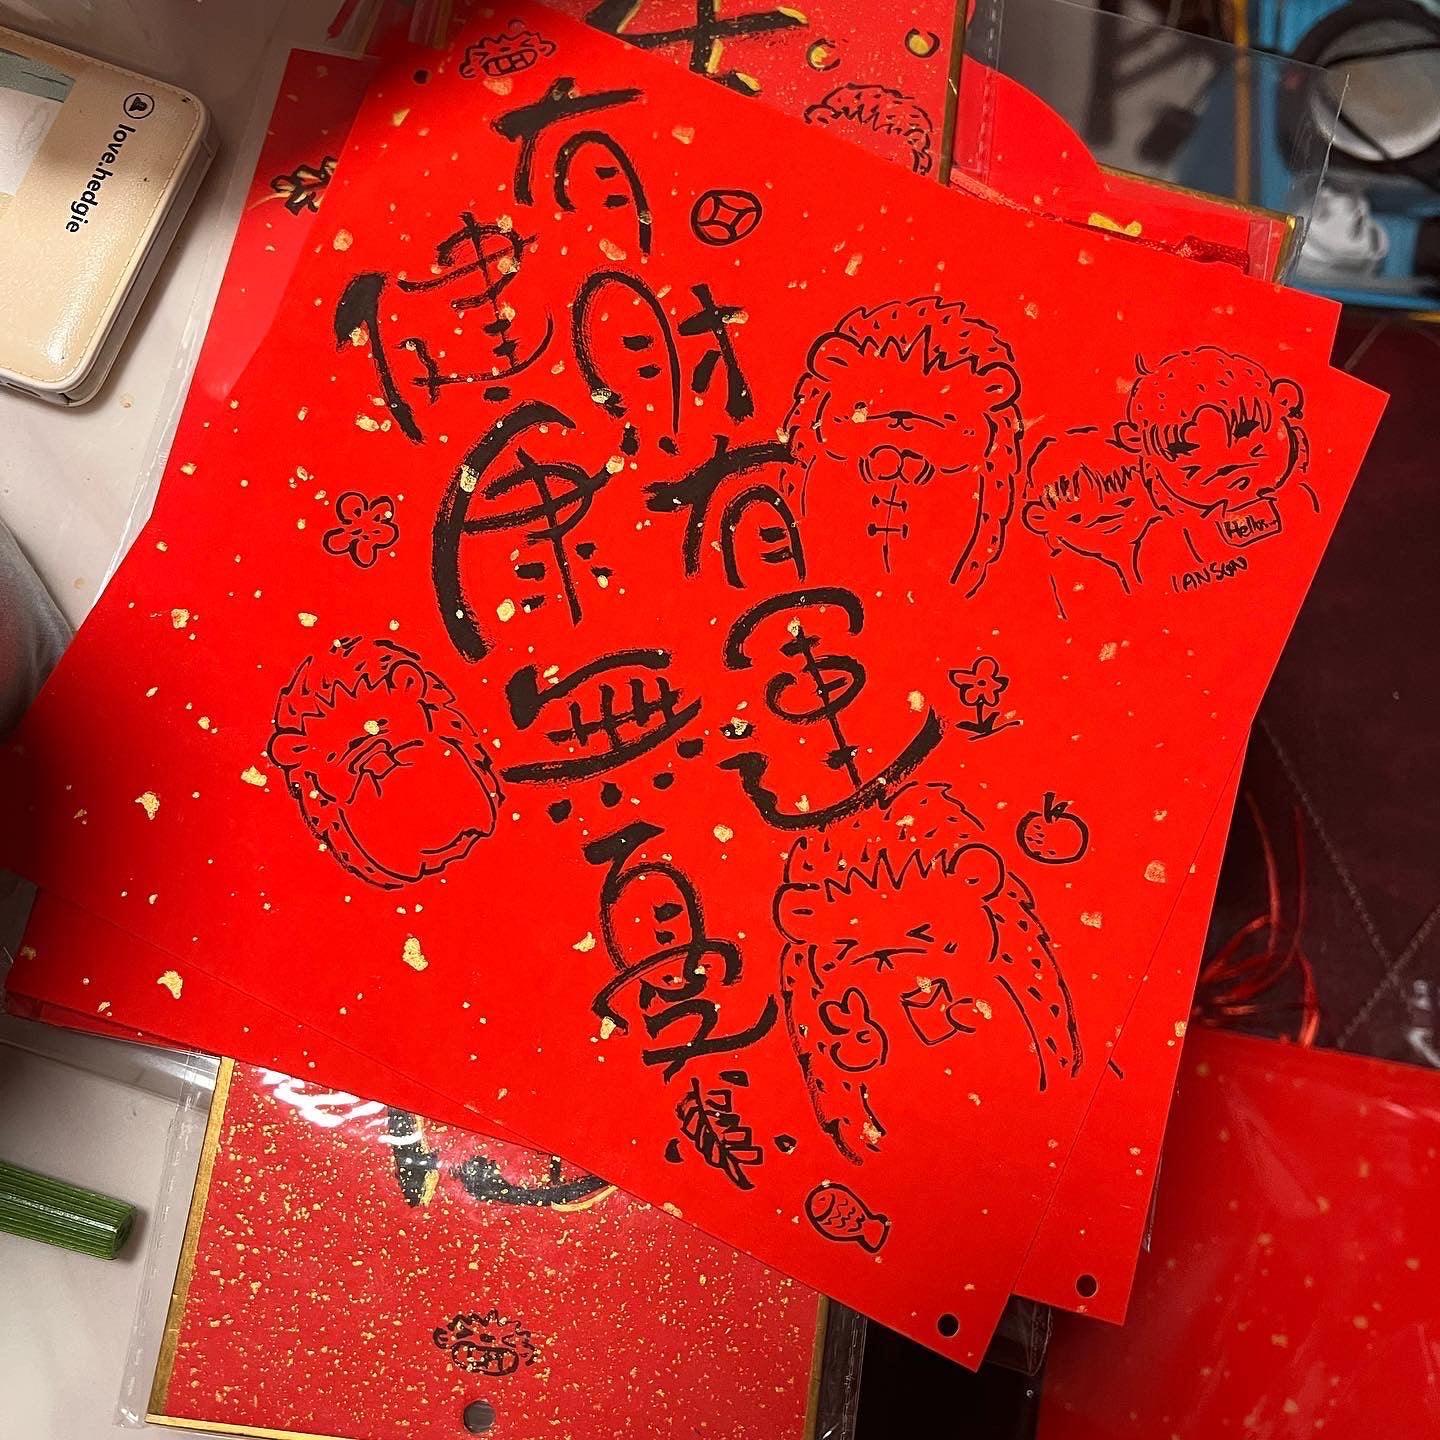 有財有運
健康無憂
love.hedgie
Hello...
IANSON